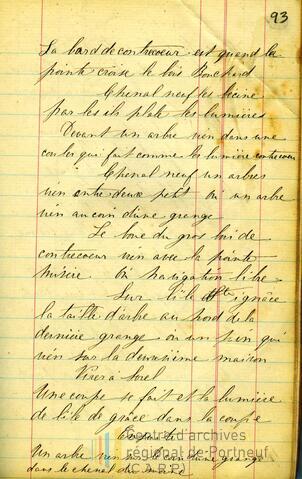 93
La bard de contrecoeur est quand la
pointe croise le bois Bouchard
Chenal neuf les
par les ils plate les lumières
un arbre vien dans une
coulee qui fait comme les lumière contrecoeur
Chenal neuf un arbres
vien entre deux petit ou un arbre
vien au coin d'une grange
Le bout du gros bois de
contrecoeur vien avec la pointe
misère ou navigation libre
Sur l'ile St ignâce
la taille d'arbre au nord de la
dernière grange ou un peu qui
vien sur la deuxsième maison
Viser à Sorel
Une coupe se fait et la lumière
de l'ile de grâce dans la coupe
Un arbre vien sur le coin d'une grange
dans le chenal du moine
Centre d'archives
régional de Portneuf
(C.A.R.P.)